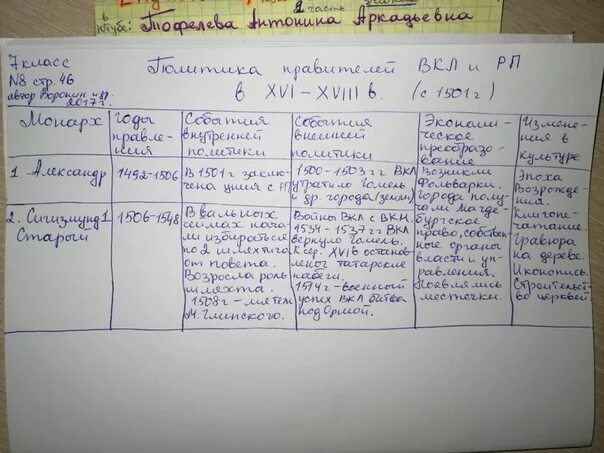 2 часть
в Ютубе: Тофелева Антонина Аркадьевна
7 класс
№8 стр. 46
автор Воронин и др.
2017 г.
Политика правителей ВКЛ и РП
в XVI – XVIII в. (с 1501 г)
Монарх
годы
правле-
ния
События
внутренней
политики
События
внешней
политики
Экономи-
ческое
преобразо-
вание
Измене-
ния в
культуре
1. Александр
1492-1506
В 1501 г заклю-
чена уния с РП
1500-1503 гг ВКЛ
утратило Гомель и
др. города (земли)
Возникли
Фольварки.
Города полу-
чали Магде-
бургское
право, собствен-
ные органы
власти и уп-
равления.
Появлялись
местечки.
Эпоха
Возрожде-
ния.
Книгопе-
чатание.
Гравюра
на дереве.
Иконопись.
Строительст-
во церквей
2. Сигизмунд 1
Старый
1506-1548
В вальных
сеймах нача-
ли избираться
по 2 шляхтича
от повета.
Возросла роль
шляхта.
1508 г - мятеж
М. Глинского.
Войны ВКЛ с ВКМ.
1534-1537 гг ВКЛ
вернуло Гомель.
К сер. XVI в останов-
лены татарские
набеги.
1514 г - военный
успех ВКЛ битва
под Оршой.